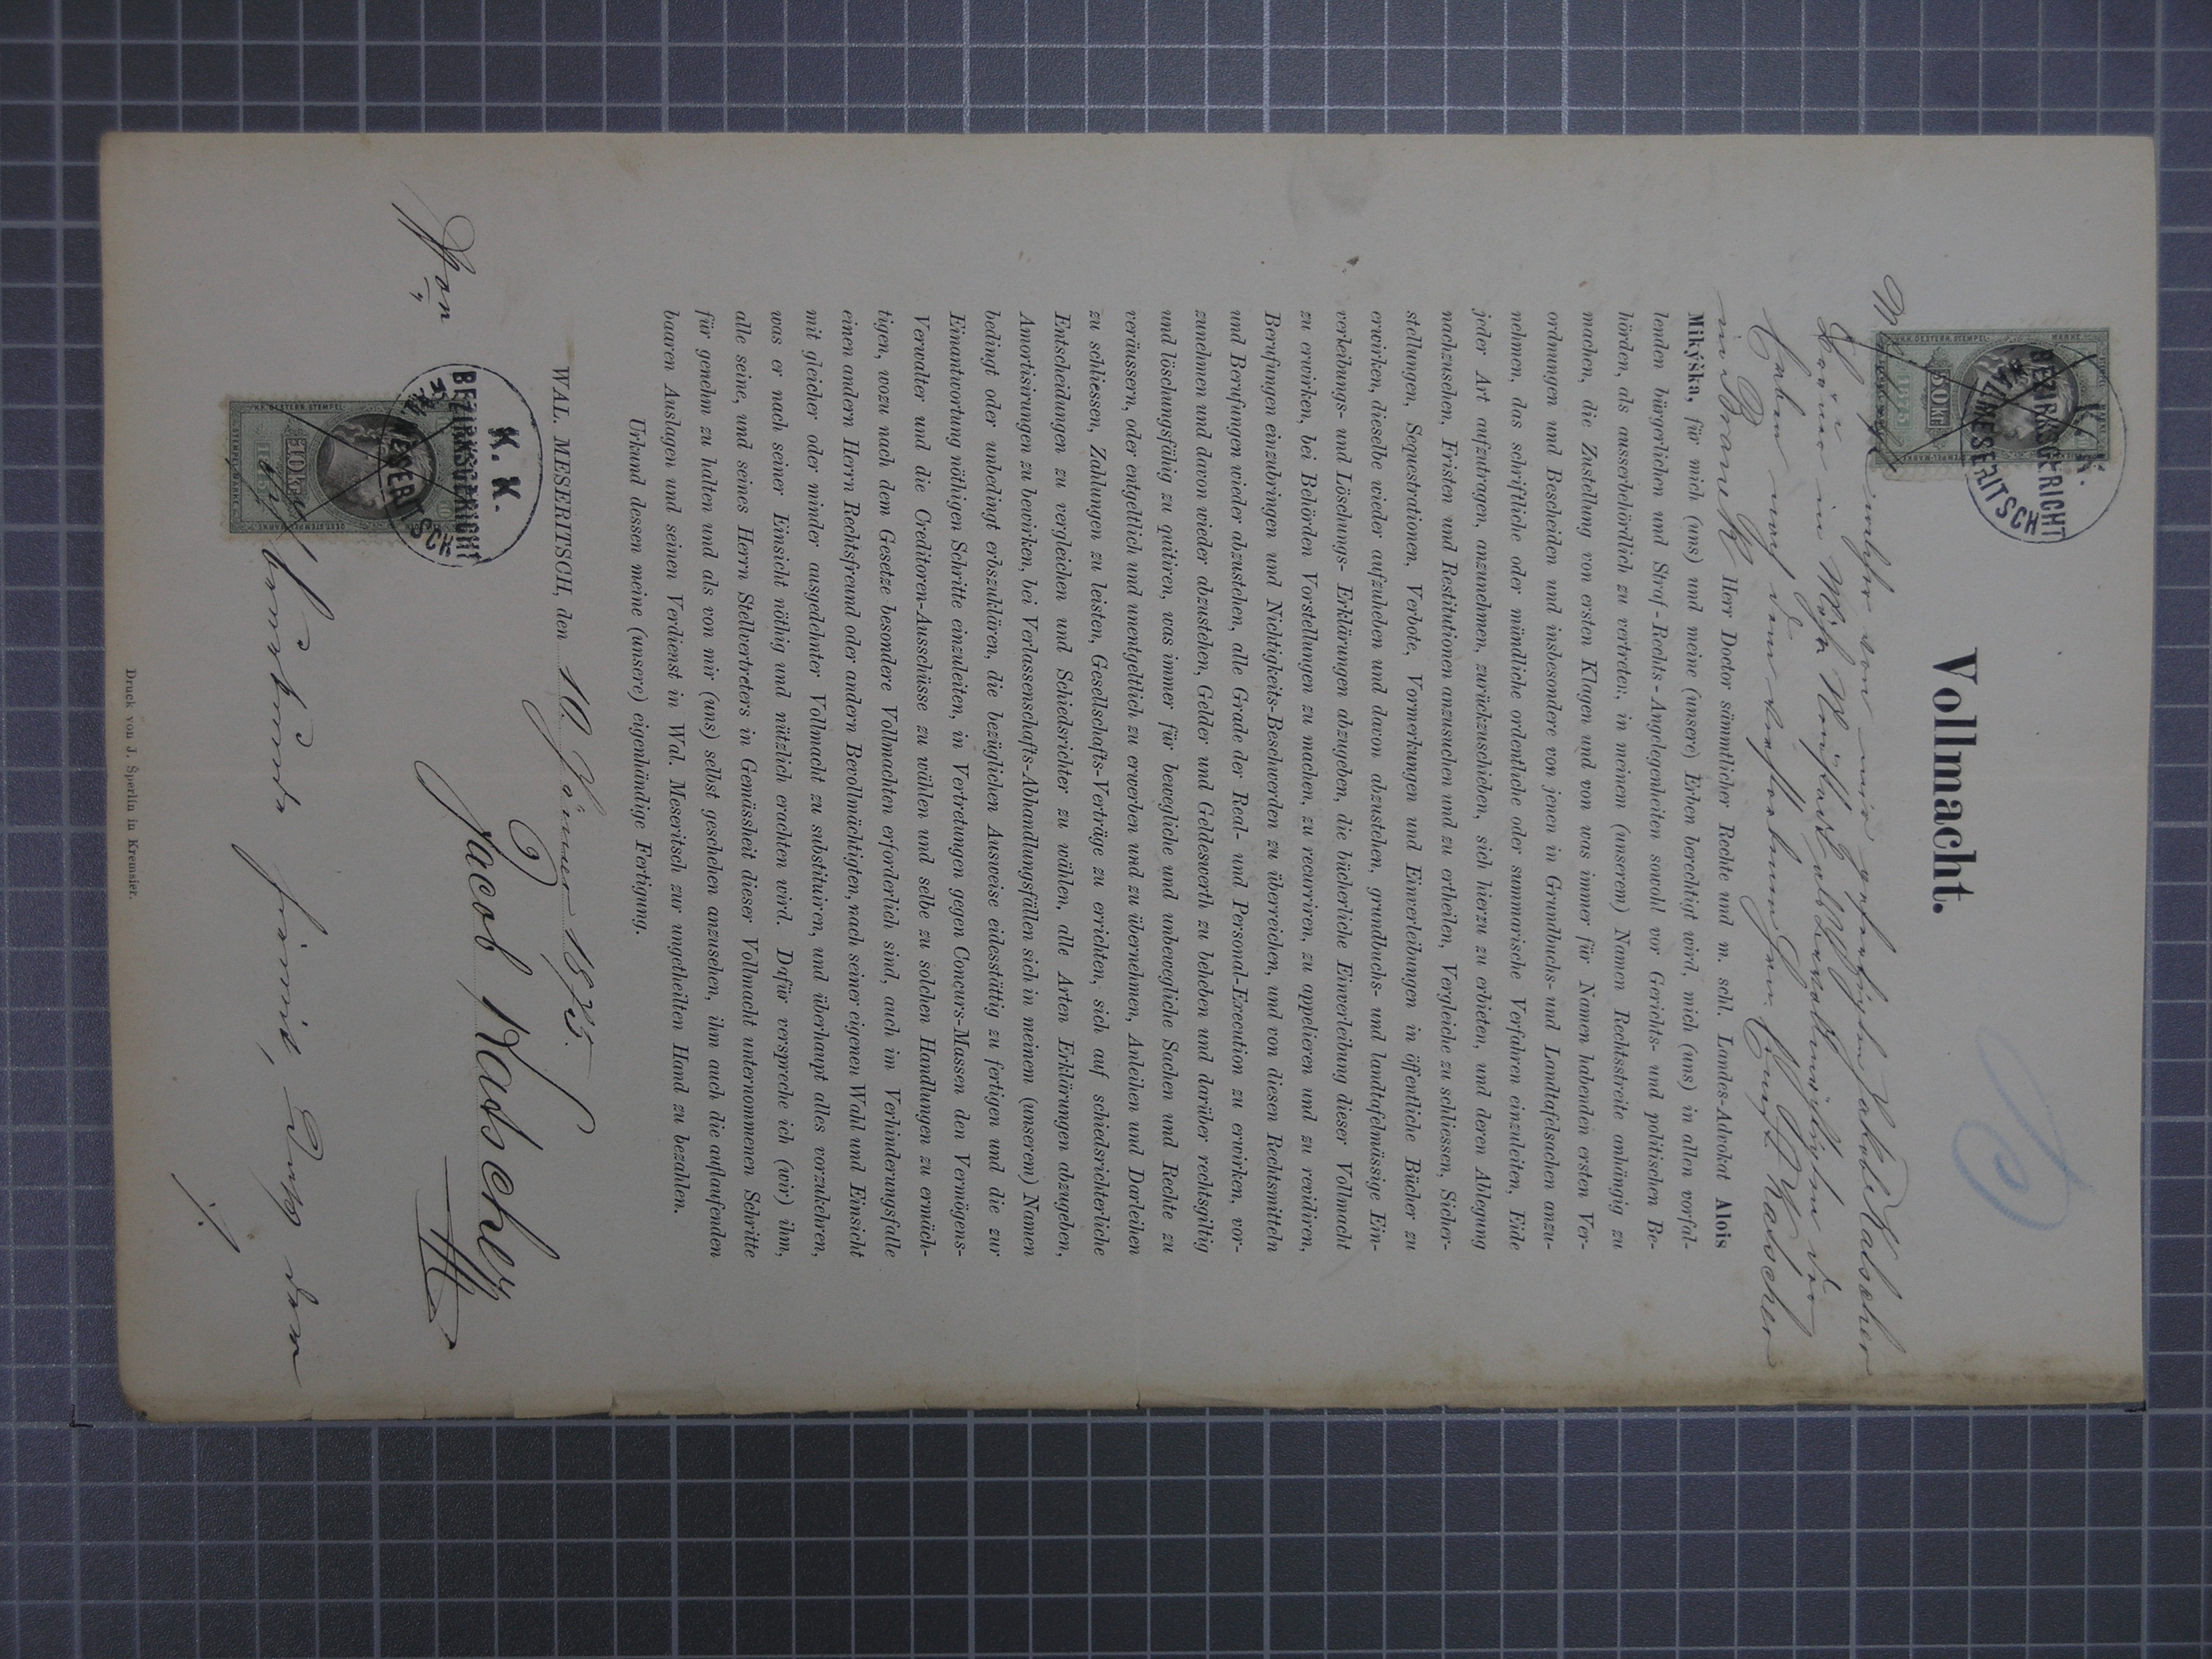 K. K.
BEZIRKSGERICHT
WAL. MESERITSCH
50 kr.
1875
Vollmacht.
welcher von mir gefertigten Jakob Katscher
in
Erben nach dem verstorbenen Herrn Katscher
in Branek Herr Doctor sämmtlicher Rechte und m. schl. Landes-Advokat Alois
Mikýška, für mich (uns) und meine (unsere) Erben berechtigt wird, mich (uns) in allen vorfal-
lenden bürgerlichen und Straf-Rechts-Angelegenheiten sowohl vor Gerichts- und politischen Be-
hörden, als ausserbehördlich zu vertreten, in meinem (unserem) Namen Rechtsstreite anhängig zu
machen, die Zustellung von ersten Klagen und von was immer für Namen habenden ersten Ver-
ordnungen und Bescheiden und insbesondere von jenen in Grundbuchs- und Landtafelsachen anzu-
nehmen, das schriftliche oder mündliche ordentliche oder summarische Verfahren einzuleiten, Eide
jeder Art aufzutragen, anzunehmen, zurückzuschieben, sich hierzu zu erbieten, und deren Ablegung
nachzusehen, Fristen und Restitutionen anzusuchen und zu ertheilen, Vergleiche zu schliessen, Sicher-
stellungen, Sequestrationen, Verbote, Vormerkungen und Einverleibungen in öffentliche Bücher zu
erwirken, dieselbe wieder aufzuheben und davon abzustehen, grundbuchs- und landtafelmässige Ein-
verleibungs- und Löschungs- Erklärungen abzugeben, die bücherliche Einverleibung dieser Vollmacht
zu erwirken, bei Behörden Vorstellungen zu machen, zu recurriren, zu appelieren und zu revidiren,
Berufungen einzubringen und Nichtigkeits-Beschwerden zu überreichen, und von diesen Rechtsmitteln
und Berufungen wieder abzustehen, alle Grade der Real- und Personal-Execution zu erwirken, vor-
zunehmen und davon wieder abzustehen, Gelder und Geldeswerth zu beheben und darüber rechtsgiltig
und löschungsfähig zu quitiren, was immer für bewegliche und unbewegliche Sachen und Rechte zu
veräussern, oder entgeltlich und unentgeltlich zu erwerben und zu übernehmen, Anleihen und Darleihen
zu schliessen, Zahlungen zu leisten, Gesellschafts-Verträge zu errichten, sich auf schiedsrichterliche
Entscheidungen zu vergleichen und Schiedsrichter zu wählen, alle Arten Erklärungen abzugeben,
Amortisirungen zu bewirken, bei Verlassenschafts-Abhandlungsfällen sich in meinem (unserem) Namen
bedingt oder unbedingt erbszuklären, die bezüglichen Ausweise eidesstättig zu fertigen und die zur
Einantwortung nöthigen Schritte einzuleiten, in Vertretungen gegen Concurs-Massen den Vermögens-
Verwalter und die Creditoren-Ausschüsse zu wählen und selbe zu solchen Handlungen zu ermäch-
tigen, wozu nach dem Gesetze besondere Vollmachten erforderlich sind, auch im Verhinderungsfalle
einen andern Herrn Rechtsfreund oder andern Bevollmächtigten, nach seiner eigenen Wahl und Einsicht
mit gleicher oder minder ausgedehnter Vollmacht zu substituiren, und überhaupt alles vorzukehren,
was er nach seiner Einsicht nöthig und nützlich erachten wird. Dafür verspreche ich (wir) ihm,
alle seine, und seines Herrn Stellvertreters in Gemässheit dieser Vollmacht unternommenen Schritte
für genehm zu halten und als von mir (uns) selbst geschehen anzusehen, ihm auch die auflaufenden
baaren Auslagen und seinen Verdienst in Wal. Meseritsch zur ungetheilten Hand zu bezahlen.
Urkund dessen meine (unsere) eigenhändige Fertigung.
WAL. MESERITSCH, den 10. Jänner 1875.
Jacob Katscher
K. K.
BEZIRKSGERICHT
WAL. MESERITSCH
Von
1875
hiemit, daß dem
./.
Druck von J. Šperlin in Kremsier.